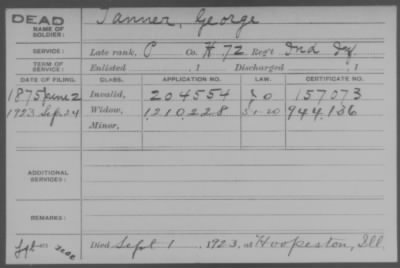 DEAD Tanner, George
NAME OF SOLDIER:
SERVICE: Late rank, P Co. H 72 Reg't Ind Inf.
TERM OF SERVICE: Enlisted , 1 Discharged , 1
DATE OF FILING. CLASS. APPLICATION NO. LAW. CERTIFICATE NO.
1875 June 2 Invalid, 204554 157073
1923 Sep. 24 Widow, 1210228 5-1-20 944,136
Minor,
ADDITIONAL SERVICES:
REMARKS:
Died Sept 1, 1923, at Hoopeston, Ill.